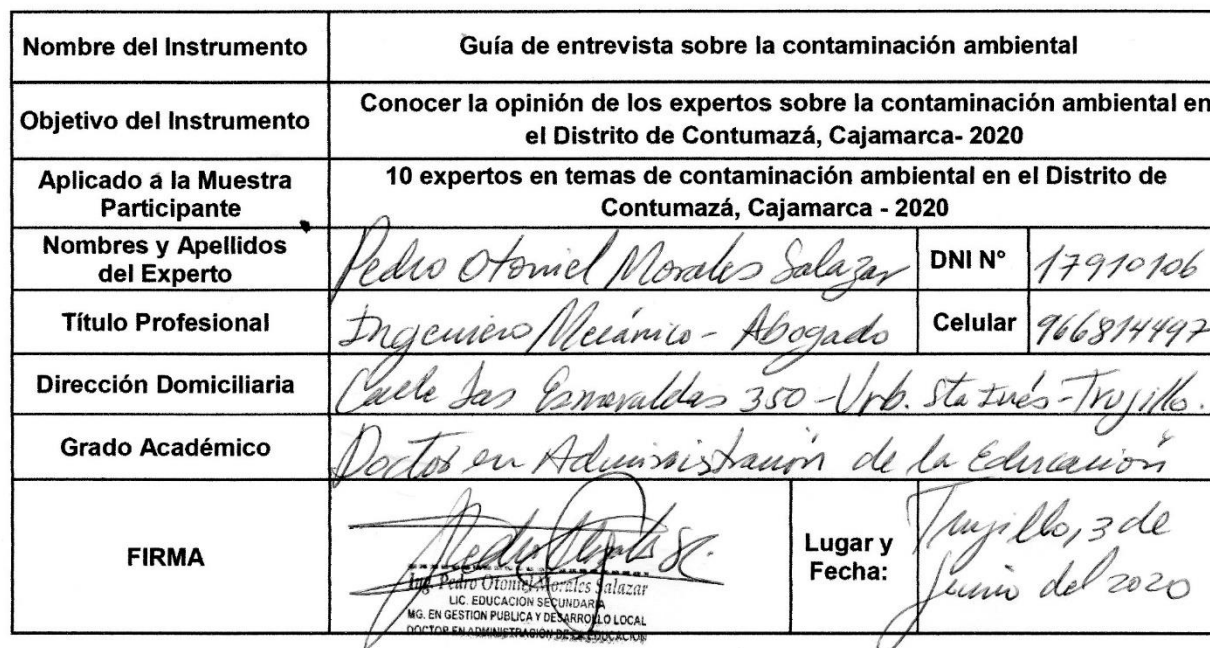 Nombre del Instrumento
Guía de entrevista sobre la contaminación ambiental
Objetivo del Instrumento
Conocer la opinión de los expertos sobre la contaminación ambiental en
el Distrito de Contumazá, Cajamarca- 2020
Aplicado a la Muestra
Participante
10 expertos en temas de contaminación ambiental en el Distrito de
Contumazá, Cajamarca - 2020
Nombres y Apellidos
del Experto
Pedro Otoniel Morales Salazar
DNI N°
17910106
Título Profesional
Ingeniero Mecánico - Abogado
Celular
966814497
Dirección Domiciliaria
Calle Las Esmeraldas 350 - Urb. Sta Inés - Trujillo.
Grado Académico
Doctor en Administración de la Educación
FIRMA
Ing. Pedro Otoniel Morales Salazar
LIC. EDUCACION SECUNDARIA
MG. EN GESTION PUBLICA Y DESARROLLO LOCAL
DOCTOR EN ADMINISTRACION DE LA EDUCACION
Lugar y
Fecha:
Trujillo, 3 de
Junio del 2020